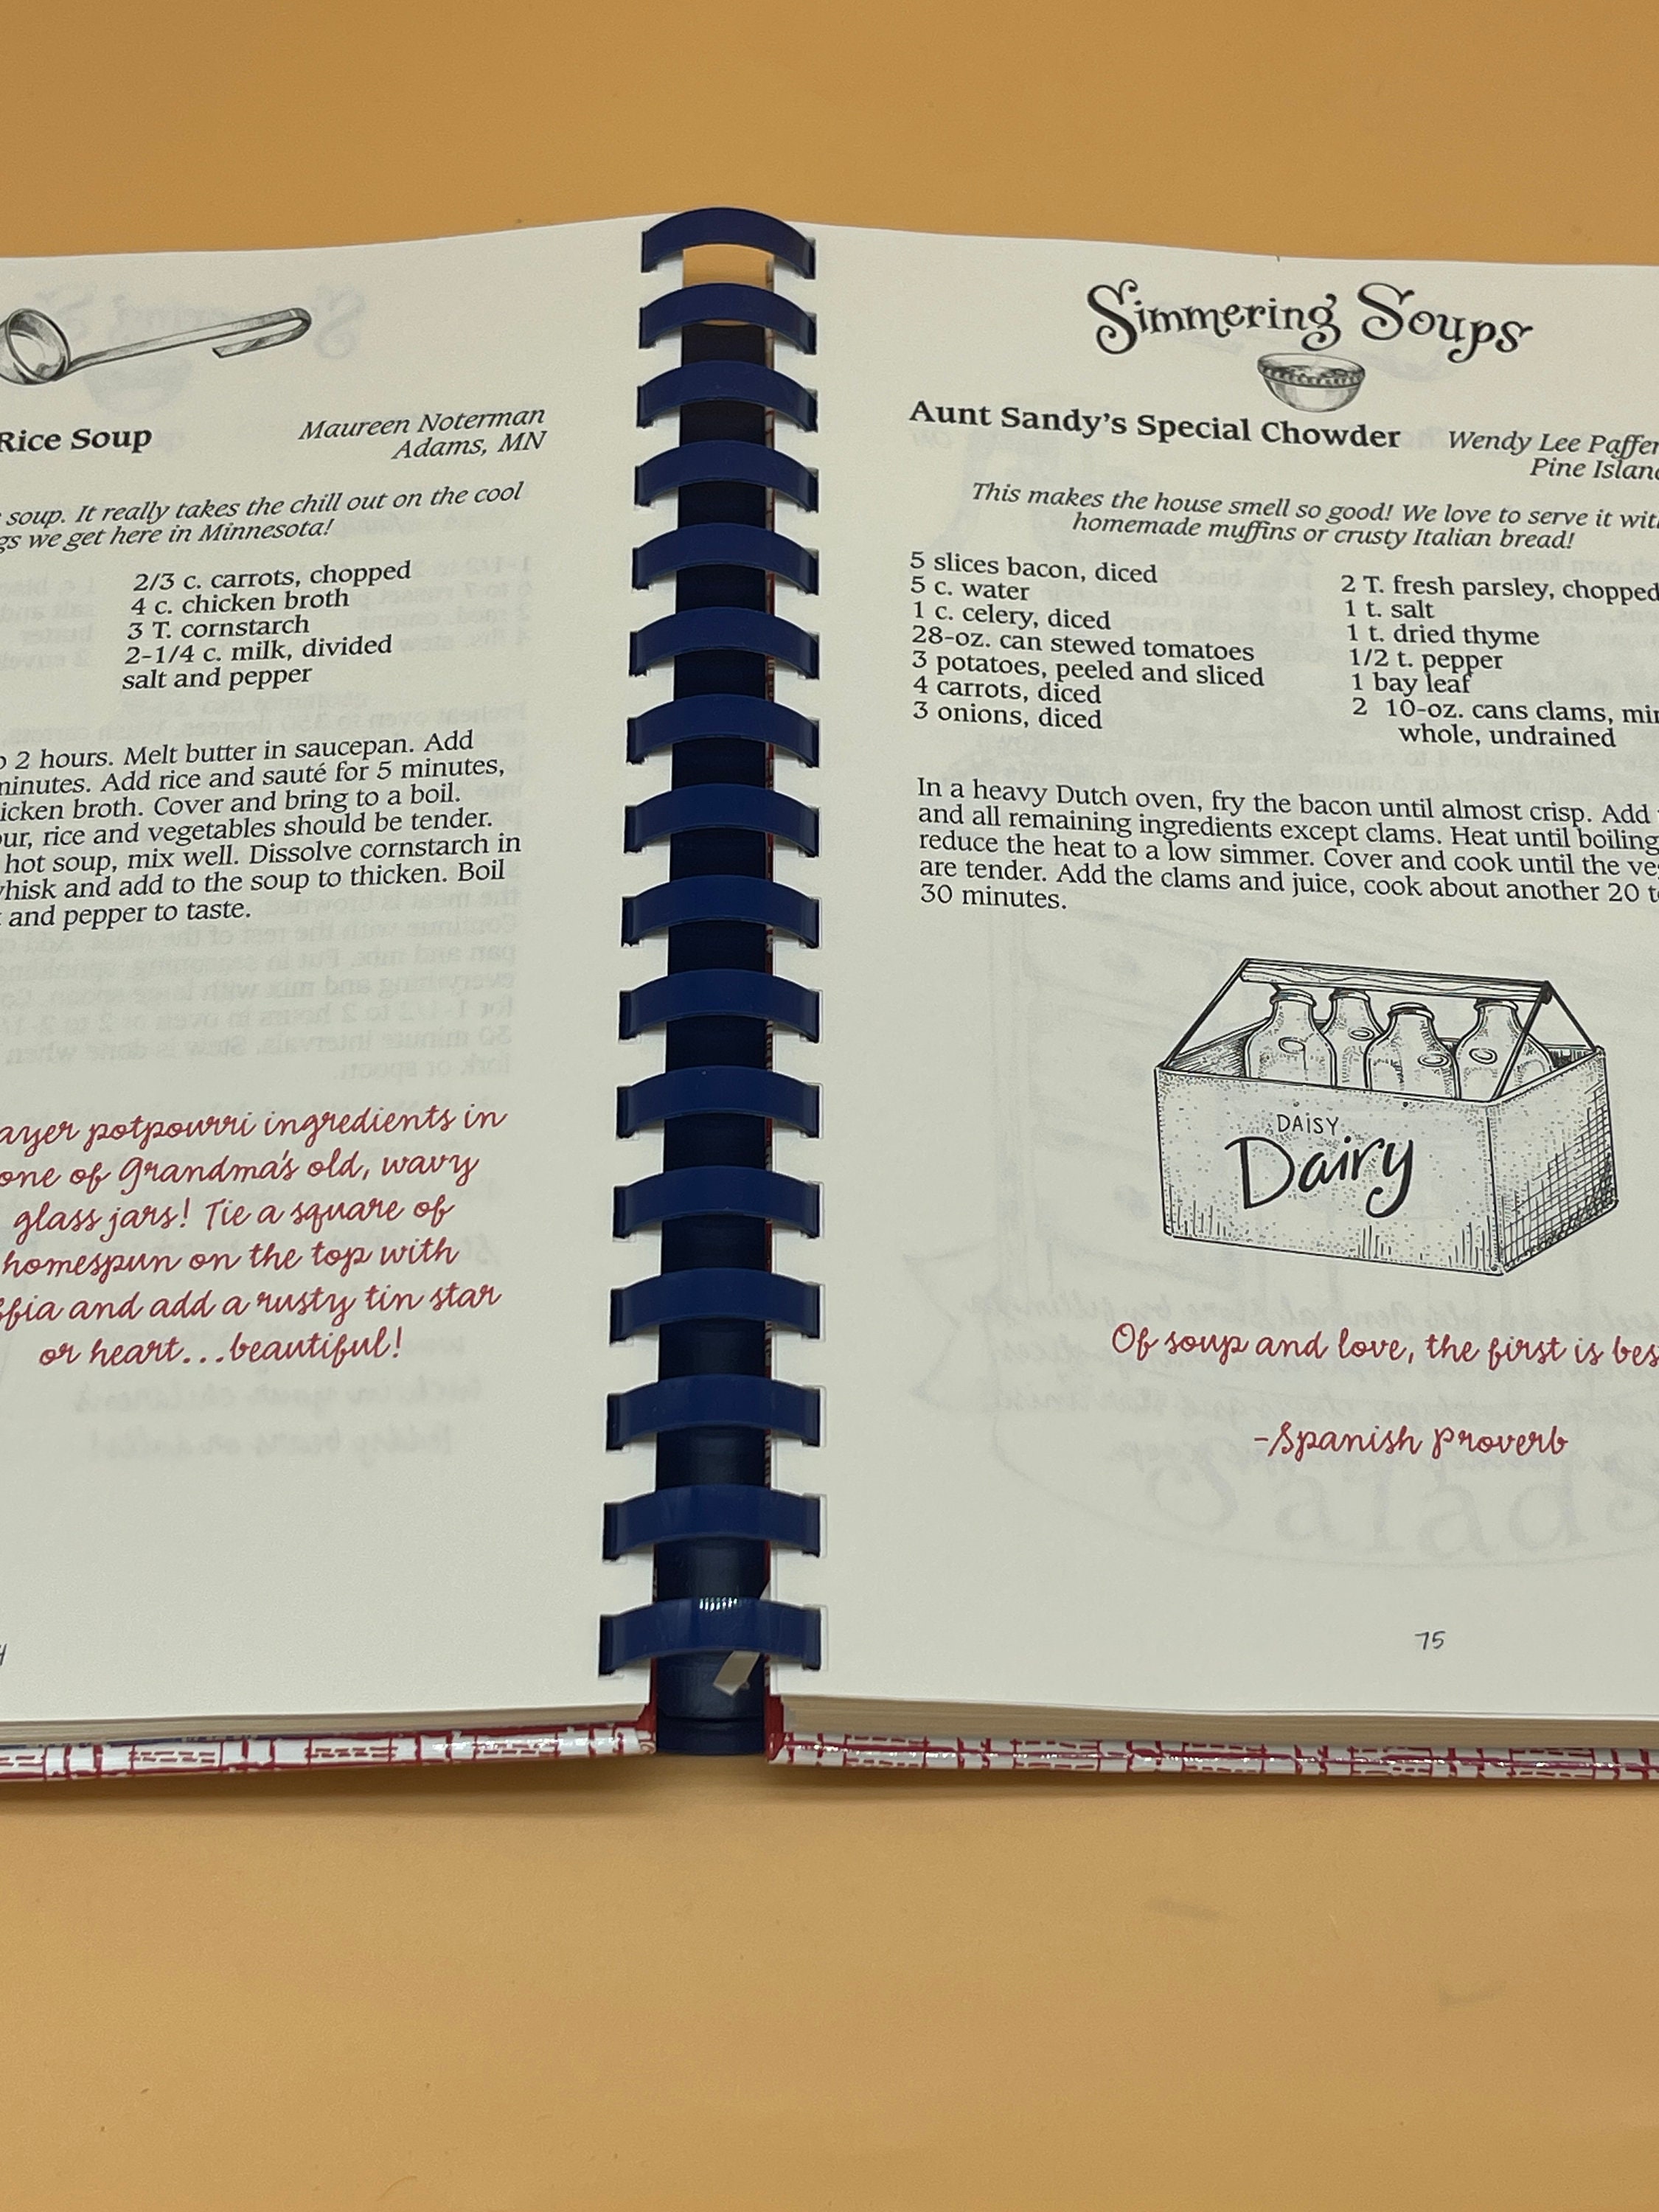 Rice Soup
Maureen Noterman
Adams, MN
soup. It really takes the chill out on the cool
we get here in Minnesota!
2/3 c. carrots, chopped
4 c. chicken broth
3 T. cornstarch
2-1/4 c. milk, divided
salt and pepper
2 hours. Melt butter in saucepan. Add
minutes. Add rice and sauté for 5 minutes,
broth. Cover and bring to a boil.
rice and vegetables should be tender.
hot soup, mix well. Dissolve cornstarch in
whisk and add to the soup to thicken. Boil
and pepper to taste.
potpourri ingredients in
one of Grandma's old, wavy
glass jars! Tie a square of
homespun on the top with
and add a rusty tin star
or heart...beautiful!
Simmering Soups
Aunt Sandy's Special Chowder
Wendy Lee Paffen
Pine Island
This makes the house smell so good! We love to serve it with
homemade muffins or crusty Italian bread!
5 slices bacon, diced
5 c. water
1 c. celery, diced
28-oz. can stewed tomatoes
3 potatoes, peeled and sliced
4 carrots, diced
3 onions, diced
2 T. fresh parsley, chopped
1 t. salt
1 t. dried thyme
1/2 t. pepper
1 bay leaf
2 10-oz. cans clams,
whole, undrained
In a heavy Dutch oven, fry the bacon until almost crisp. Add
and all remaining ingredients except clams. Heat until boiling
reduce the heat to a low simmer. Cover and cook until the
are tender. Add the clams and juice, cook about another 20
30 minutes.
DAISY
Dairy
Of soup and love, the first is bes
-Spanish Proverb
75